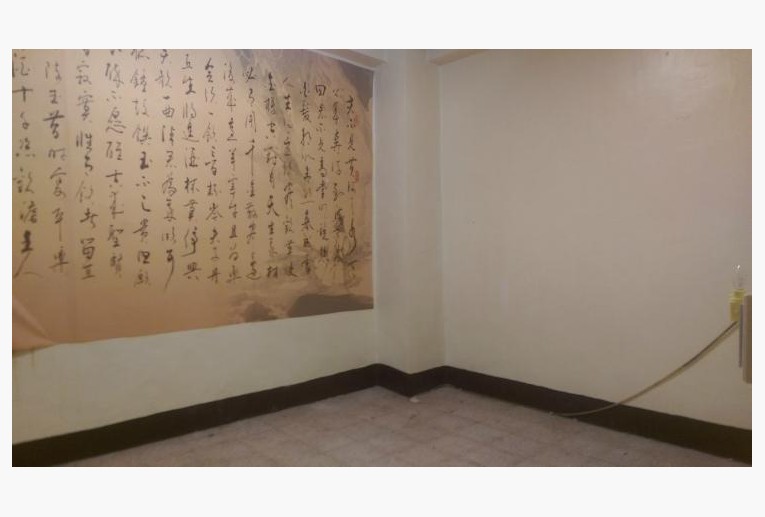 君不見黃河
回君不見高堂明鏡
白髮朝如青絲暮成雪
人生得意須盡歡莫使
金樽空對月天生我材
必有用千金散盡還
復來烹羊宰牛且為樂
會須一飲三百杯岑夫子丹
丘生將進酒杯莫停與
君歌一曲請君為我傾耳
聽鐘鼓饌玉不足貴但願
醉不願醒古來聖賢
皆寂寞惟有飲者留其
陳王昔時宴平樂
酒十千恣歡謔主人